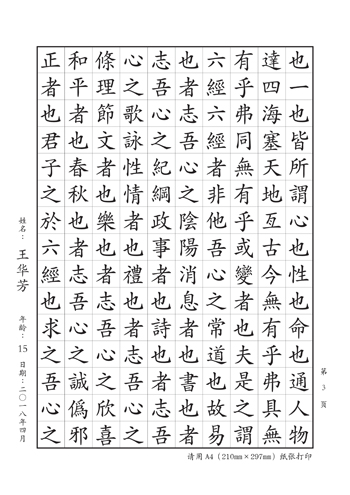 也一也皆所謂心也性也命也通人物
達四海塞天地亙古今無有乎弗具無
有乎弗同無有乎或變者也夫是之謂
六經六經者非他吾心之常道也故易
也者志吾心之陰陽消息者也書也者
志吾心之紀綱政事者也詩也者志吾
心之歌詠性情者也禮也者志吾心之
條理節文者也樂也者志吾心之欣喜
和平者也春秋也者志吾心之誠僞邪
正者也君子之於六經也求之吾心之
姓名：王华芳 年龄：15 日期：二〇一八年四月
第 3 页
请用 A4（210mm×297mm）纸张打印